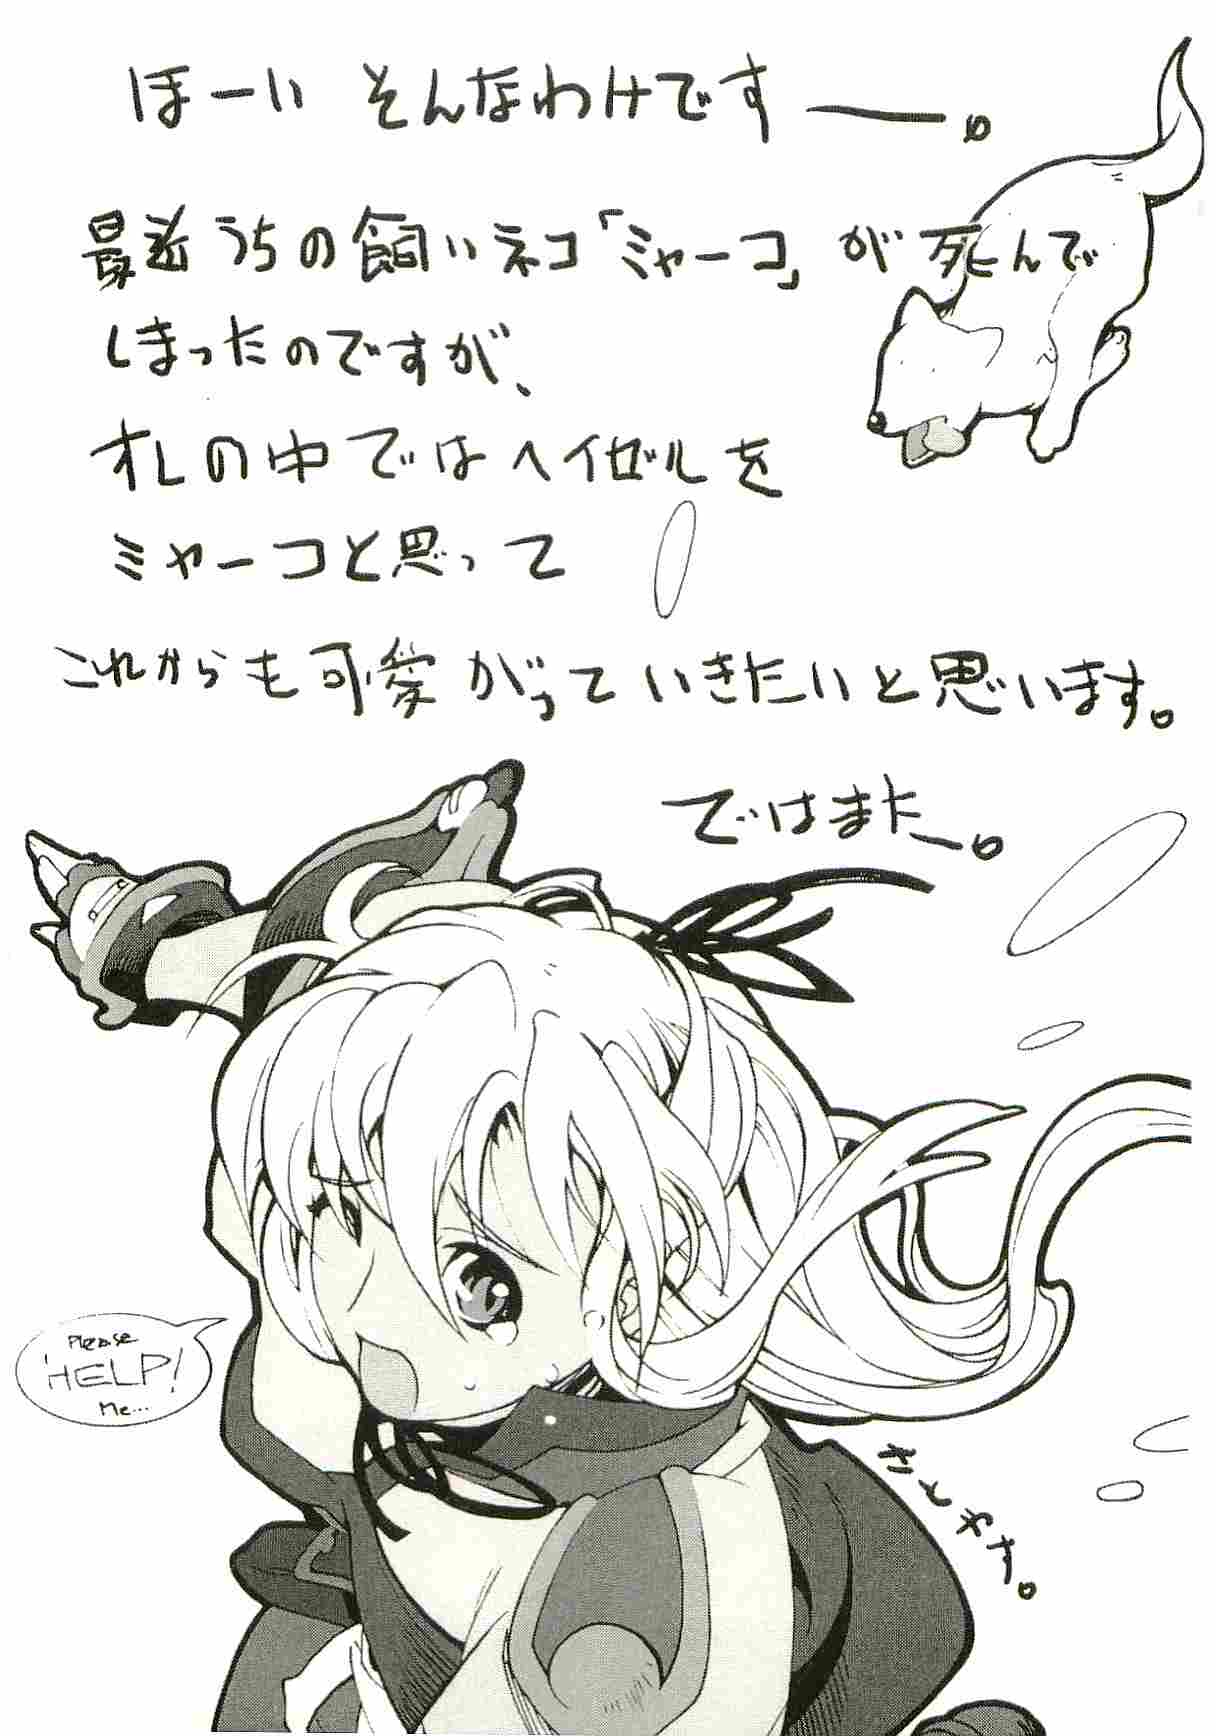 ほーい そんなわけですー。
最近うちの飼いネコ「ミャーコ」が死んで
しまったのですが、
オレの中ではヘイゼルを
ミャーコと思って
これからも可愛がっていきたいと思います。
ではまたー。
Please
HELP!
Me...
さとやす。